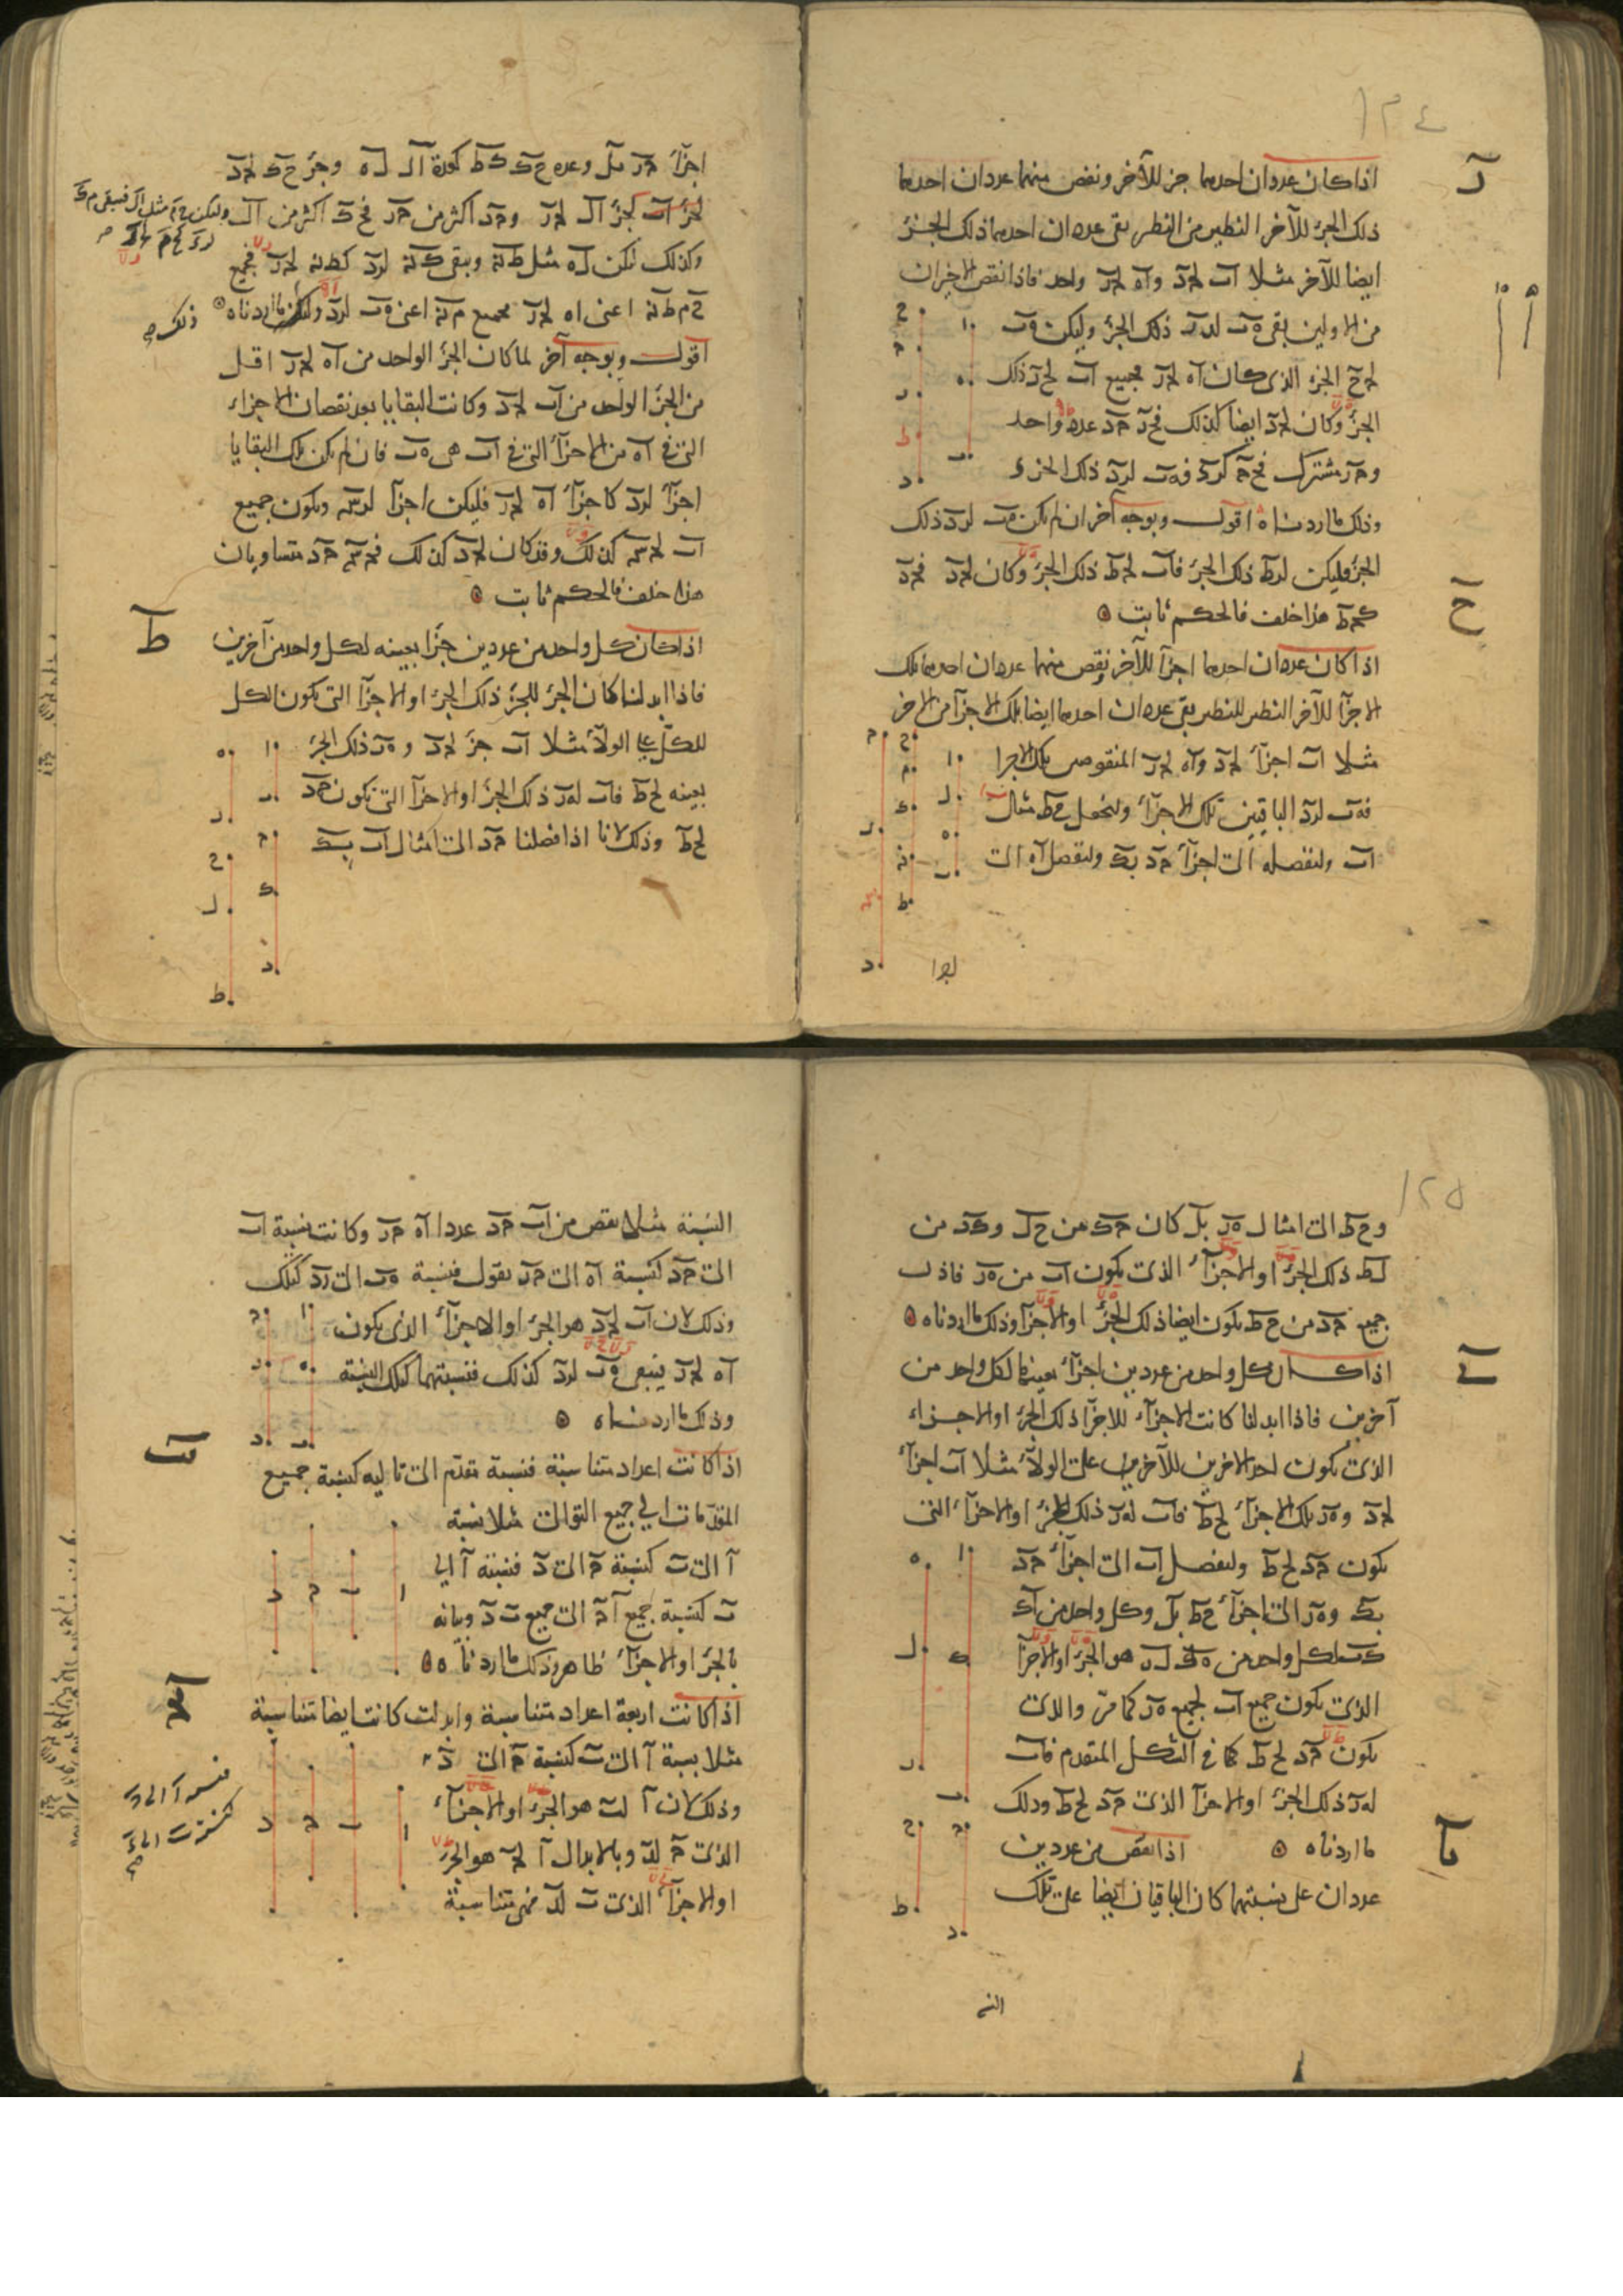 ١٢٤
ز
اذا كان عددان احدهما جزء للآخر ونقص منهما عددان احدهما
ذلك الجزء للآخر النظير من النظير بقى عددان احدهما ذلك الجزء
ايضا للآخر مثلا اب لجد واه لجز واحد فاذا نقص الاخيران
من الاولين بقى هب لدز ذلك الجزء وليكن هب
لجح الجزء الذى كان اه لجز فجميع اب لحز ذلك
الجزء وكان لجد ايضا كذلك فحز جد عدد واحد
وجز مشترك فحج كزد فهب لزد ذلك الجزء
وذلك ما اردناه اقول وبوجه آخر ان لم يكن هب لزد ذلك
الجزء فليكن لزط ذلك الجزء فاب لجط ذلك الجزء وكان لجد فجد
كجط هذا خلف فالحكم ثابت
ح
اذا كان عددان احدهما اجزآ للآخر ونقص منهما عددان احدهما تلك
الاجزآ للآخر النظير للنظير بقى عددان احدهما ايضا تلك الاجزآ من الاخر
مثلا اب اجزآء لجد واه لجز المنقوص تلك الاجزا
فهب لزد الباقيين تلك الاجزآء ولنجعل حط مثال
اب ولنفصله الى اجزآء جد بك ولنفصل اه الى
اجزا
اجزآء جز بل وعدة حك كط كعدة ال له وجزء حك لجد
كجزء ال لجز وجد اكثر من جز فحك اكثر من ال وليكن حم مثل ال فيبقى مك
وكذلك ليكن له مثل طن ويبقى كن لزد كطن لجز فجميع
حم طن اعنى اه لجز فجميع من اعنى هب لزد وذلك ما اردناه
اقول وبوجه آخر لما كان الجزء الواحد من اه لجز اقل
من الجزء الواحد من اب لجد وكانت البقايا بعد نقصان الاجزاء
التى فى اه من الاجزآء التى فى اب هى هب فان لم يكن تلك البقايا
اجزآء لزد كاجزآء اه لجز فليكن اجزآ لزس ويكون جميع
اب لجس كذلك وقد كان لجد كذلك فجس جد متساويان
هذا خلف فالحكم ثابت
ط
اذا كان كل واحد من عددين جزءا بعينه لكل واحد من آخرين
فاذا ابدلنا كان الجزء للجزء ذلك الجزء او الاجزآ التى يكون الكل
للكل على الولآء مثلا اب جزء لجد و هز ذلك الجزء
بعينه لحط فاب لهز ذلك الجزء او الاجزآ التى تكون جد
لحط وذلك لانا اذا فصلنا جد الى امثال اب بك
١٢٥
وحط الى امثال هز بل كان جك من حل وكد من
لط ذلك الجزء او الاجزآء الذى يكون اب من هز فاذن
جميع جد من حط يكون ايضا ذلك الجزء او الاجزآ وذلك ما اردناه
ى
اذا كان كل واحد من عددين اجزآء بعينها لكل واحد من
آخرين فاذا ابدلنا كانت الاجزآء للاجزآ ذلك الجزء او الاجزاء
الذى يكون احد الاخرين للآخرين على الولآء مثلا اب اجزآء
لجد وهز تلك الاجزآء لحط فاب لهز ذلك الجزء او الاجزآء التى
يكون جد لحط ولنفصل اب الى اجزآء جد
بك وهز الى اجزآء حط بل وكل واحد من اك
كب لكل واحد من هل لز هو الجزء او الاجزآ
الذى يكون جميع اب لجميع هز كما مرّ والذى
يكون جد لحط كما فى الشكل المتقدم فاب
لهز ذلك الجزء او الاجزآ الذى جد لحط وذلك
يا
ما اردناه اذا نقص من عددين
عددان على نسبتهما كان الباقيان ايضا على تلك
النسبة
النسبة مثلا نقص من اب جد عددا اه جز وكانت نسبة اب
الى جد كنسبة اه الى جز نقول فنسبة هب الى زد كذلك
وذلك لان اب لجد هو الجزء او الاجزآء الذى يكون
اه لجز فيبقى هب لزد كذلك فنسبتهما كتلك النسبة
وذلك ما اردناه
يب
اذا كانت اعداد متناسبة فنسبة مقدّم الى تاليه كنسبة جميع
المقدّمات الى جميع التوالى مثلا نسبة
ا الى ب كنسبة ج الى د فنسبة ا الى
ب كنسبة جميع ا ج الى جميع ب د وبيانه
بالجزء او الاجزآء ظاهر وذلك ما اردناه
يج
اذا كانت اربعة اعداد متناسبة وابدلت كانت ايضا متناسبة
مثلا نسبة ا الى ب كنسبة ج الى د
فنسبة ا الى ج
كنسبة ب الى د
وذلك لان ا لب هو الجزء او الاجزآء
الذى ج لد وبالابدال ا لج هو الجزء
او الاجزآء الذى ب لد فهى متناسبة